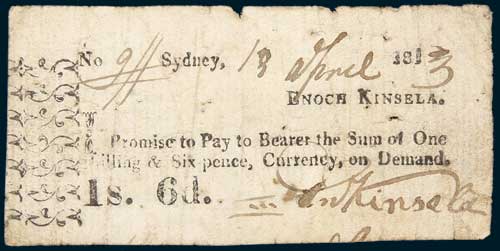 No Sydney, 18 April 1813
ENOCH KINSELA.
I Promise to Pay to Bearer the Sum of One
hilling & Six-pence, Currency, on Demand.
1s. 6d. En Kinsela